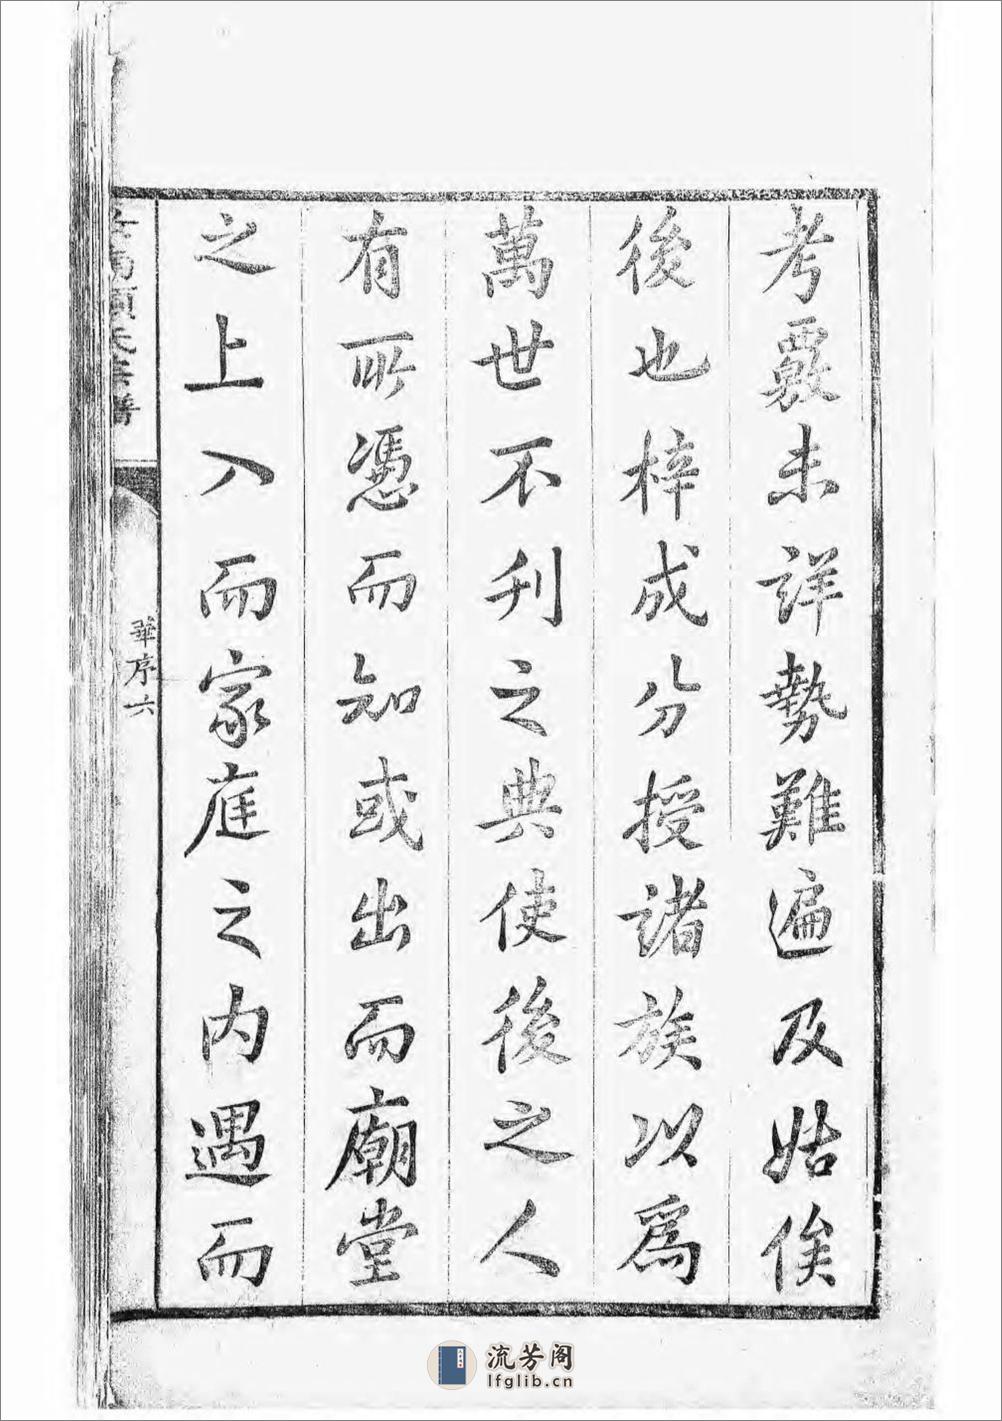 考覈未詳勢難遍及姑俟
後也梓成分授諸族以爲
萬世不刋之典使後之人
有所憑而知或出而廟堂
之上入而家庭之内遇而
氏宗譜
華序六
流芳阁
lfglib.cn